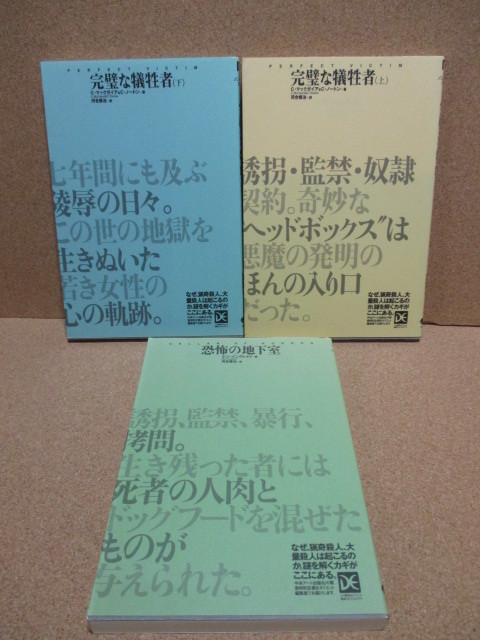 PERFECT VICTIM
完璧な犠牲者(下)
C・マックガイア&C・ノートン・著
河合修治・訳
七年間にも及ぶ
凌辱の日々。
この世の地獄を
生きぬいた
若き女性の
心の軌跡。
なぜ、猟奇殺人、大
量殺人は起こるの
か。謎を解くカギが
ここにある。
PERFECT VICTIM
完璧な犠牲者(上)
C・マックガイア&C・ノートン・著
河合修治・訳
誘拐・監禁・奴隷
契約。奇妙な
“ヘッドボックス”は
悪魔の発明の
ほんの入り口
だった。
なぜ、猟奇殺人、大
量殺人は起こるの
か。謎を解くカギが
ここにある。
CELLAR OF HORROR
恐怖の地下室
河合修治・訳
誘拐、監禁、暴行、
拷問。
生き残った者には
死者の人肉と
ドッグフードを混ぜた
ものが
与えられた。
なぜ、猟奇殺人、大
量殺人は起こるの
か。謎を解くカギが
ここにある。